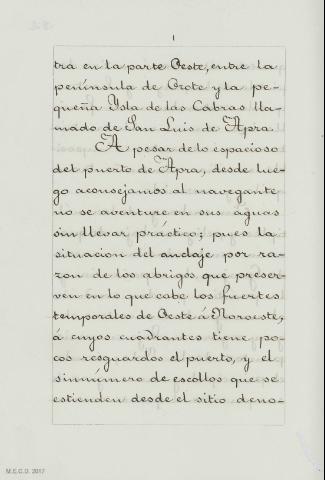 tra en la parte Oeste, entre la
península de Orote y la pe-
queña Ysla de las Cabras lla-
mado de San Luis de Apra.
A pesar de lo espacioso
del puerto de Apra, desde lue-
go aconsejamos al navegante
no se aventure en sus aguas
sin llevar práctico; pues la
situacion del anclaje por ra-
zon de los abrigos que preser-
ven en lo que cabe los fuertes
temporales de Oeste á Noroeste,
á cuyos cuadrantes tiene po-
cos resguardos el puerto, y el
sinnúmero de escollos que se
estienden desde el sitio deno-
M.E.C.D. 2017